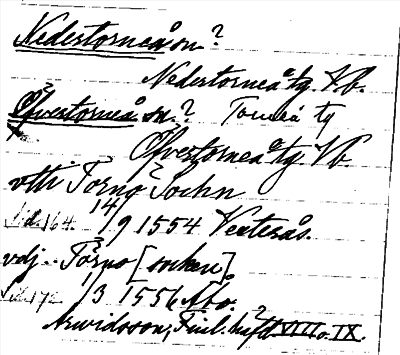 Nedertorneå sn?
Nedertorneå tg. Vb.
Öfvertorneå sn.? Torneå tg
Öfvertorneå tg. Vb
vtti Torno Sochn
Sid. 164. 14/9 1554 Västerås.
vdj Torno [socken].
Sid. 172 1/3 1556 Åbo.
Arwidsson, Finl. häft VIII o. IX.